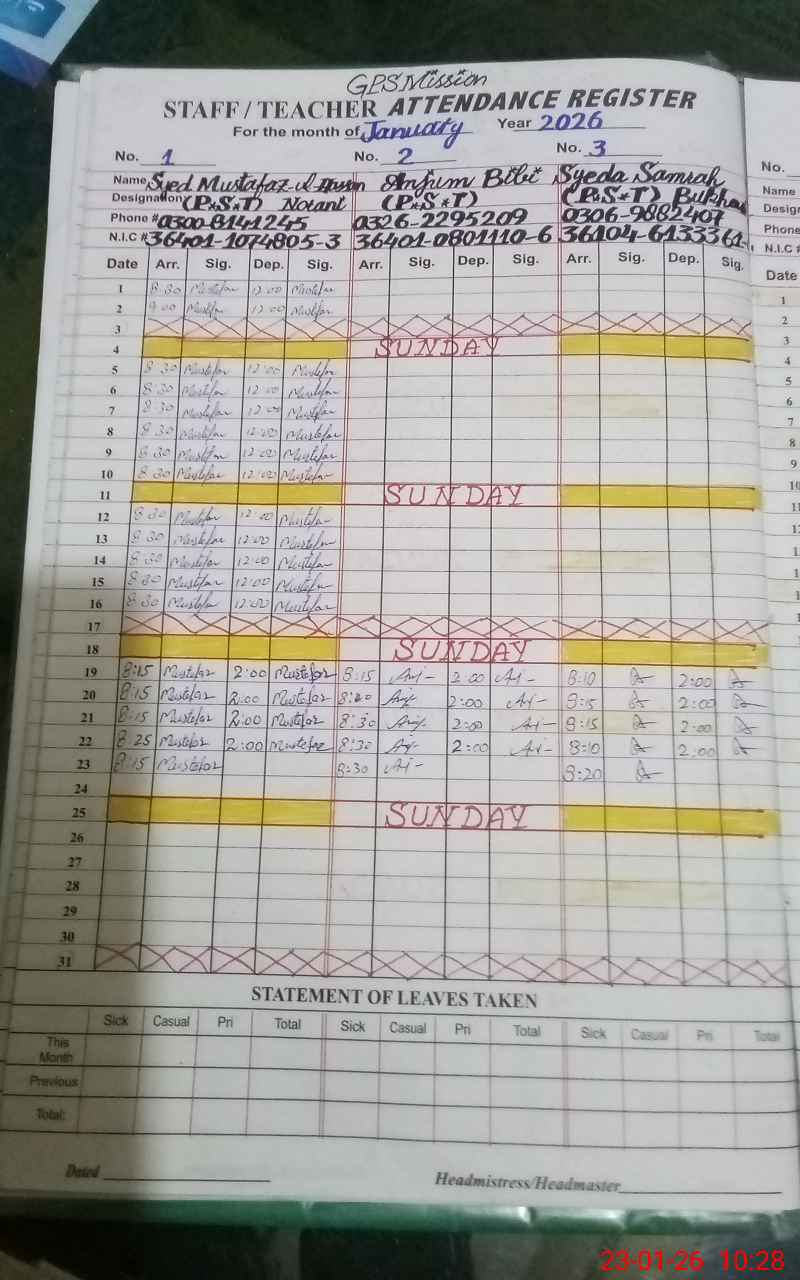 GPS Mission
STAFF / TEACHER ATTENDANCE REGISTER
For the month of January Year 2026
No. 1 No. 2 No. 3 No.
Name Syed Mustafaz-ul-Hassan Anjum Bibi Syeda Samrah Name
Designation (P.S.T) (P.S.T) (P.S.T)
Phone # 0300-8141245 0326-2295209 0306-9882407 Phone
N.I.C # 36401-1074805-3 36401-0801110-6 36104-6133361- N.I.C #
Date Arr. Sig. Dep. Sig. Arr. Sig. Dep. Sig. Arr. Sig. Dep. Sig. Date
1 8:30 Mustafaz 12:00 Mustafaz 1
2 9:00 Mustafaz 12:00 Mustafaz 2
3 3
4 SUNDAY 4
5 8:30 Mustafaz 12:00 Mustafaz 5
6 8:30 Mustafaz 12:00 Mustafaz 6
7 8:30 Mustafaz 12:00 Mustafaz 7
8 8:30 Mustafaz 12:00 Mustafaz 8
9 8:30 Mustafaz 12:00 Mustafaz 9
10 8:30 Mustafaz 12:00 Mustafaz 10
11 SUNDAY 11
12 8:30 Mustafaz 12:00 Mustafaz
13 8:30 Mustafaz 12:00 Mustafaz
14 8:30 Mustafaz 12:00 Mustafaz
15 8:30 Mustafaz 12:00 Mustafaz
16 8:30 Mustafaz 12:00 Mustafaz
17
18 SUNDAY
19 8:15 Mustafaz 2:00 Mustafaz 8:15 2:00 8:10 2:00
20 8:15 Mustafaz 2:00 Mustafaz 8:20 2:00 8:15 2:00
21 8:15 Mustafaz 2:00 Mustafaz 8:30 2:00 8:15 2:00
22 8:25 Mustafaz 2:00 Mustafaz 8:30 2:00 8:10 2:00
23 8:15 Mustafaz 8:30 8:20
24
25 SUNDAY
26
27
28
29
30
31
STATEMENT OF LEAVES TAKEN
Sick Casual Pri Total Sick Casual Pri Total Sick Casual Pri Total
This Month
Previous
Total:
Dated Headmistress/Headmaster
23-01-26 10:28